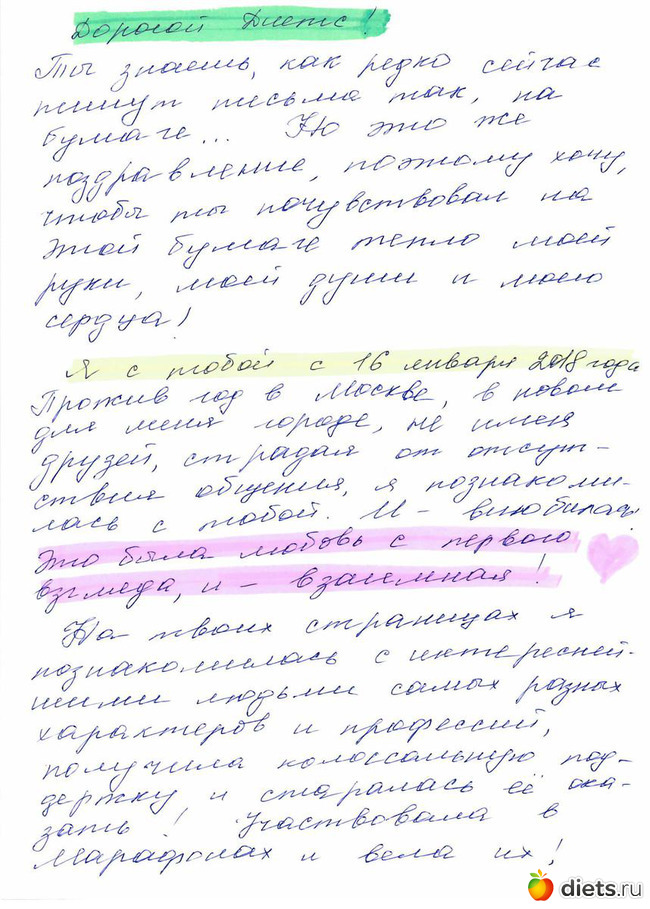 Дорогой Диетс!
Ты знаешь, как редко сейчас
пишут письма так, на
бумаге... Но это же
поздравление, поэтому хочу,
чтобы ты почувствовал на
этой бумаге тепло моей
руки, моей души и моего
сердца!
Я с тобой с 16 января 2018 года
Прожив год в Москве, в новом
для меня городе, не имея
друзей, страдая от отсут-
ствия общения, я познакоми-
лась с тобой. И - влюбилась
Это была любовь с первого
взгляда, и - взаимная!
На твоих страницах я
познакомилась с интересней-
шими людьми самых разных
характеров и профессий,
получила колоссальную под-
держку и старалась её ока-
зать! Участвовала в
Марафонах и вела их!
diets.ru